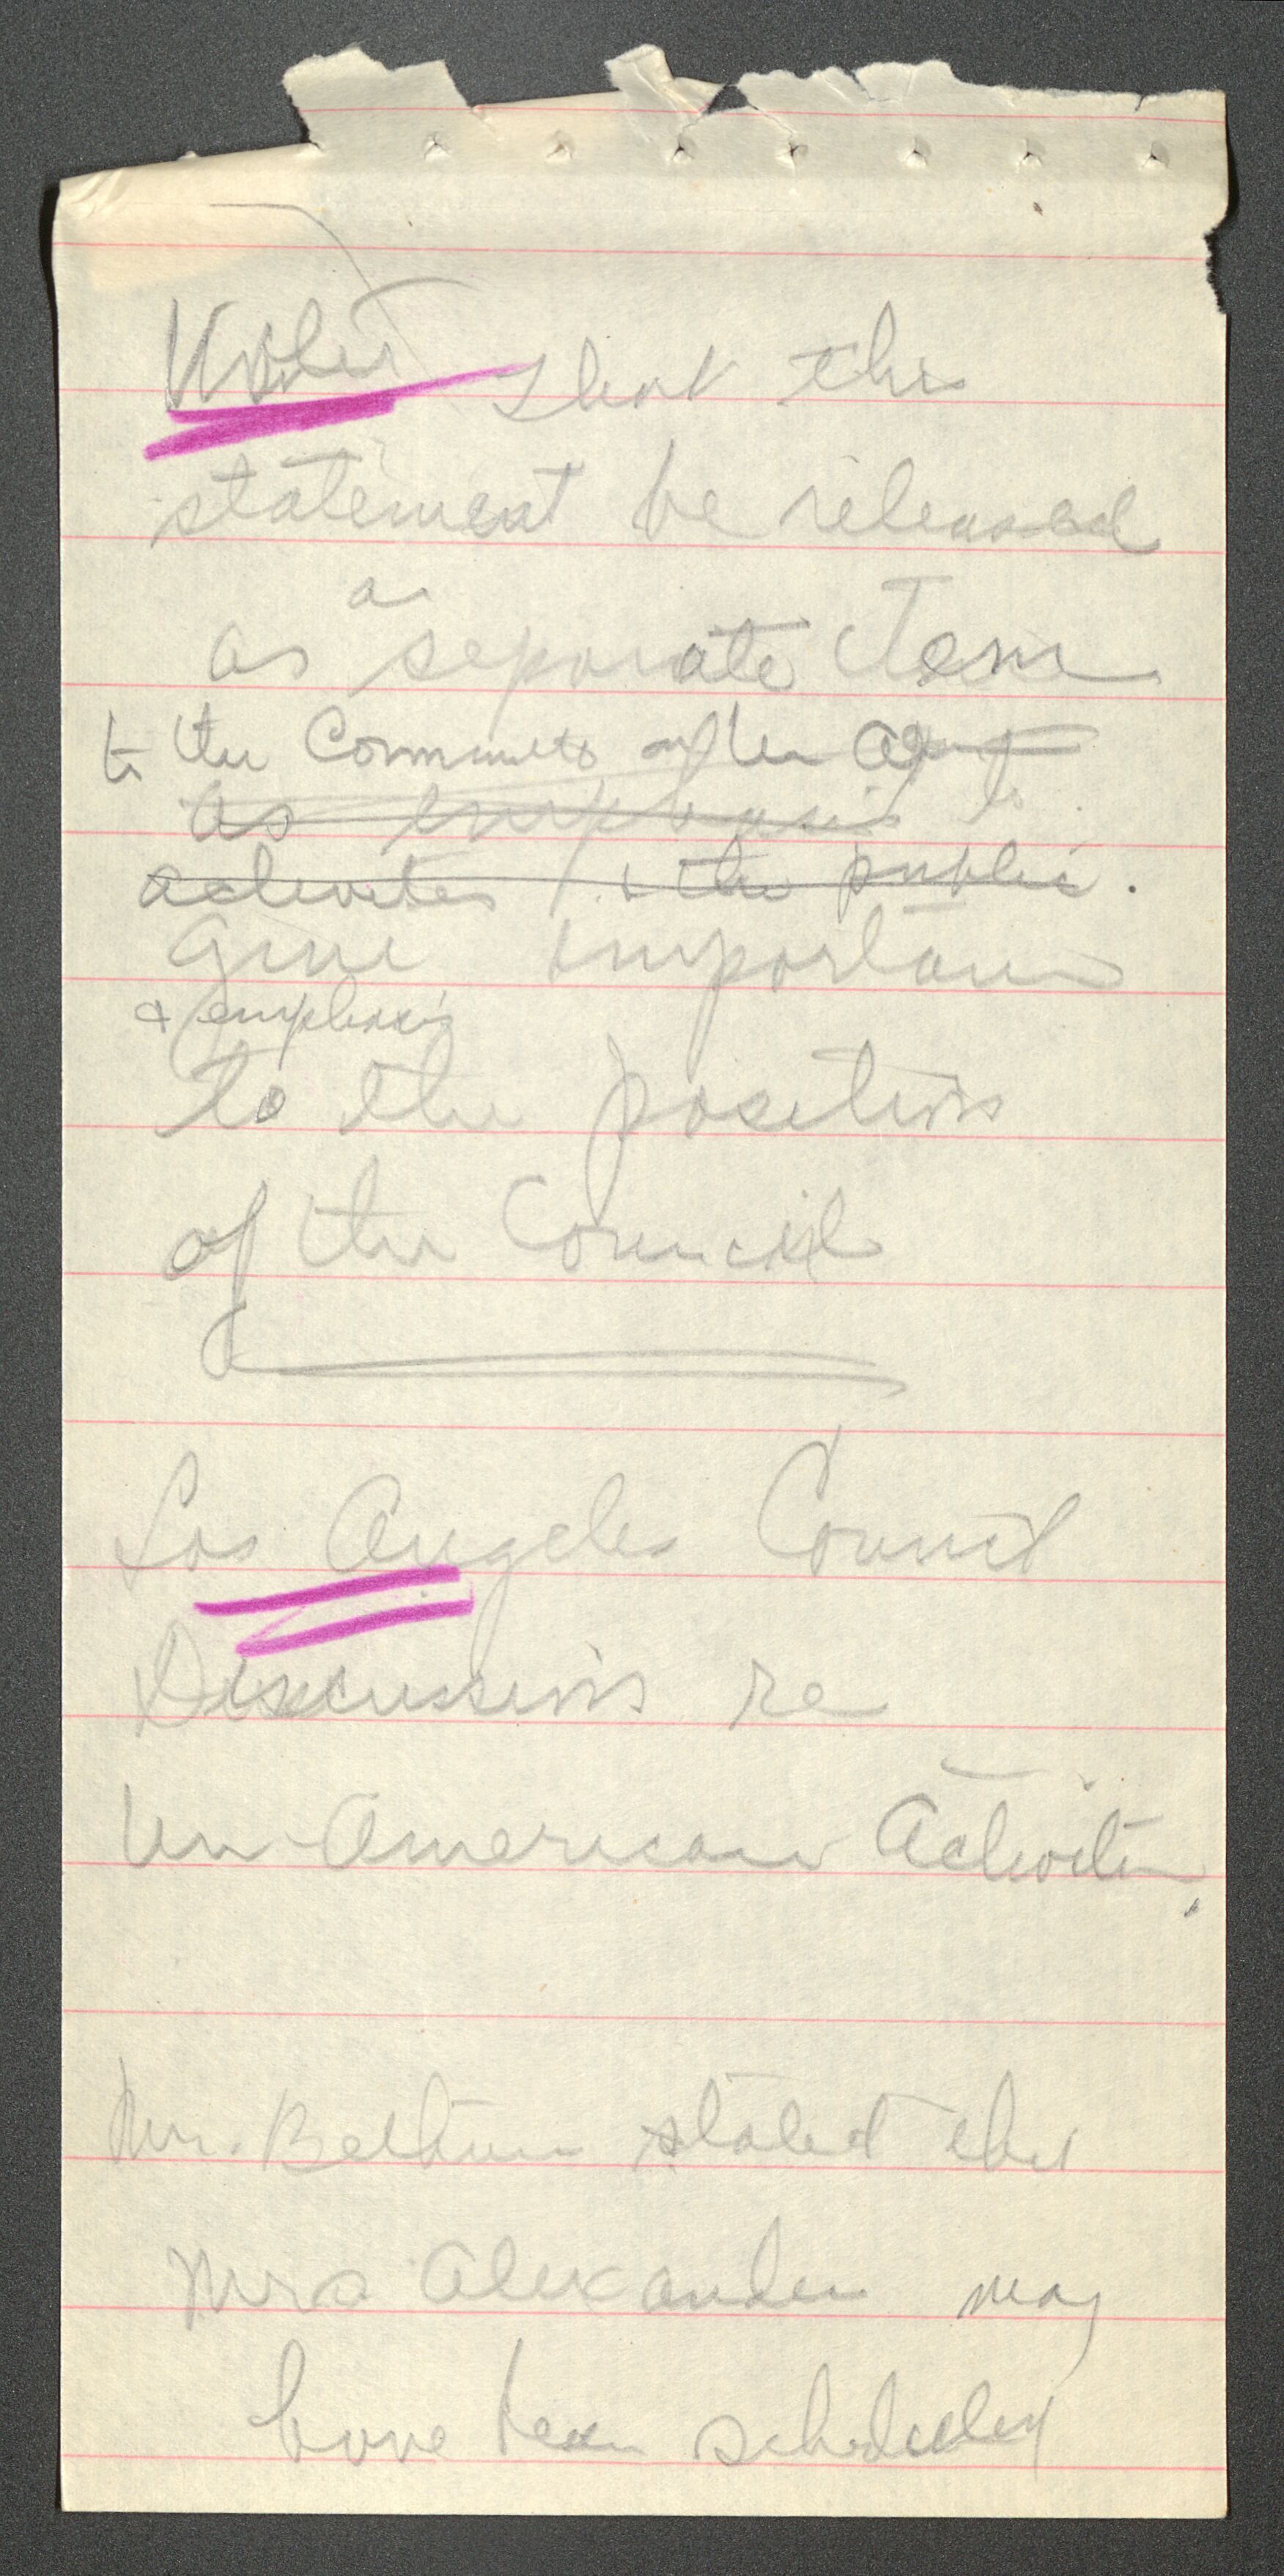 Voted that the
statement be released
a
as separate Item
to the Committe on the
as emphasis to
activities & the public.
give importance
& emphasis
to the position
of the Council
Los Angeles Council
Discussions re
Un-American Activities,
Mrs. Bethune stated that
Mrs Alexander may
have been scheduled